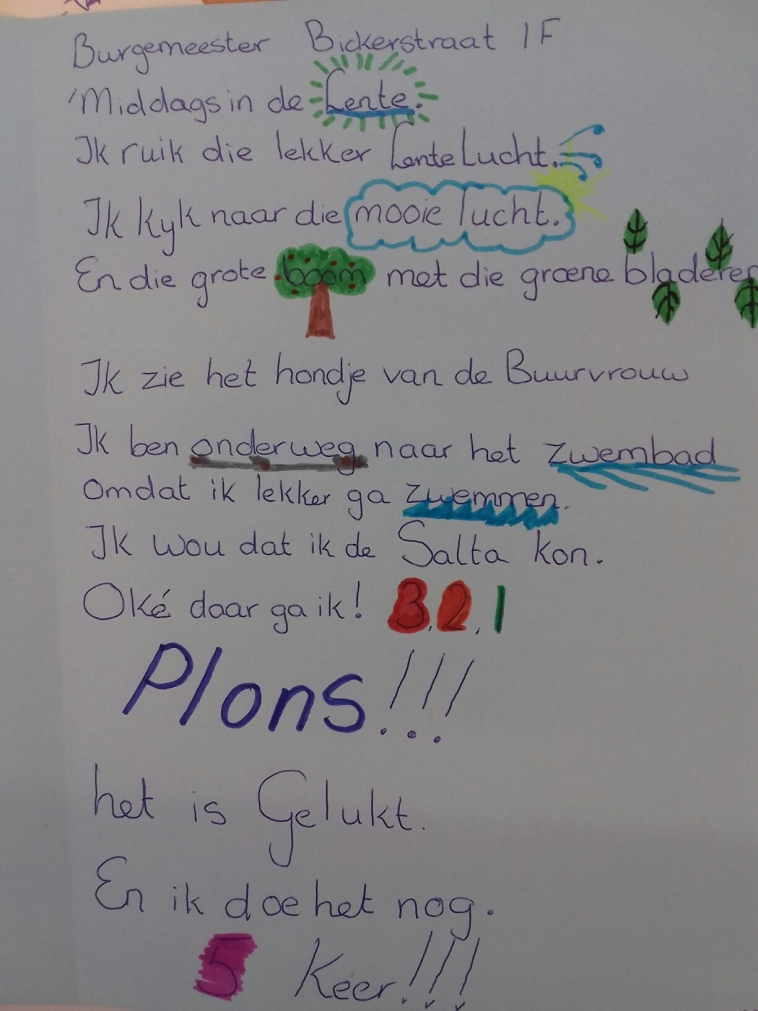 Burgemeester Bickerstraat 1F
'Middags in de Lente.
Ik ruik die lekker Lente Lucht.
Ik kyk naar die mooie lucht.
En die grote boom met die groene bladeren
Ik zie het hondje van de Buurvrouw
Ik ben onderweg naar het zwembad
Omdat ik lekker ga zwemmen.
Ik wou dat ik de Salta kon.
Oké daar ga ik! 3, 2, 1
Plons!!!
het is Gelukt.
En ik doe het nog.
5 Keer!!!